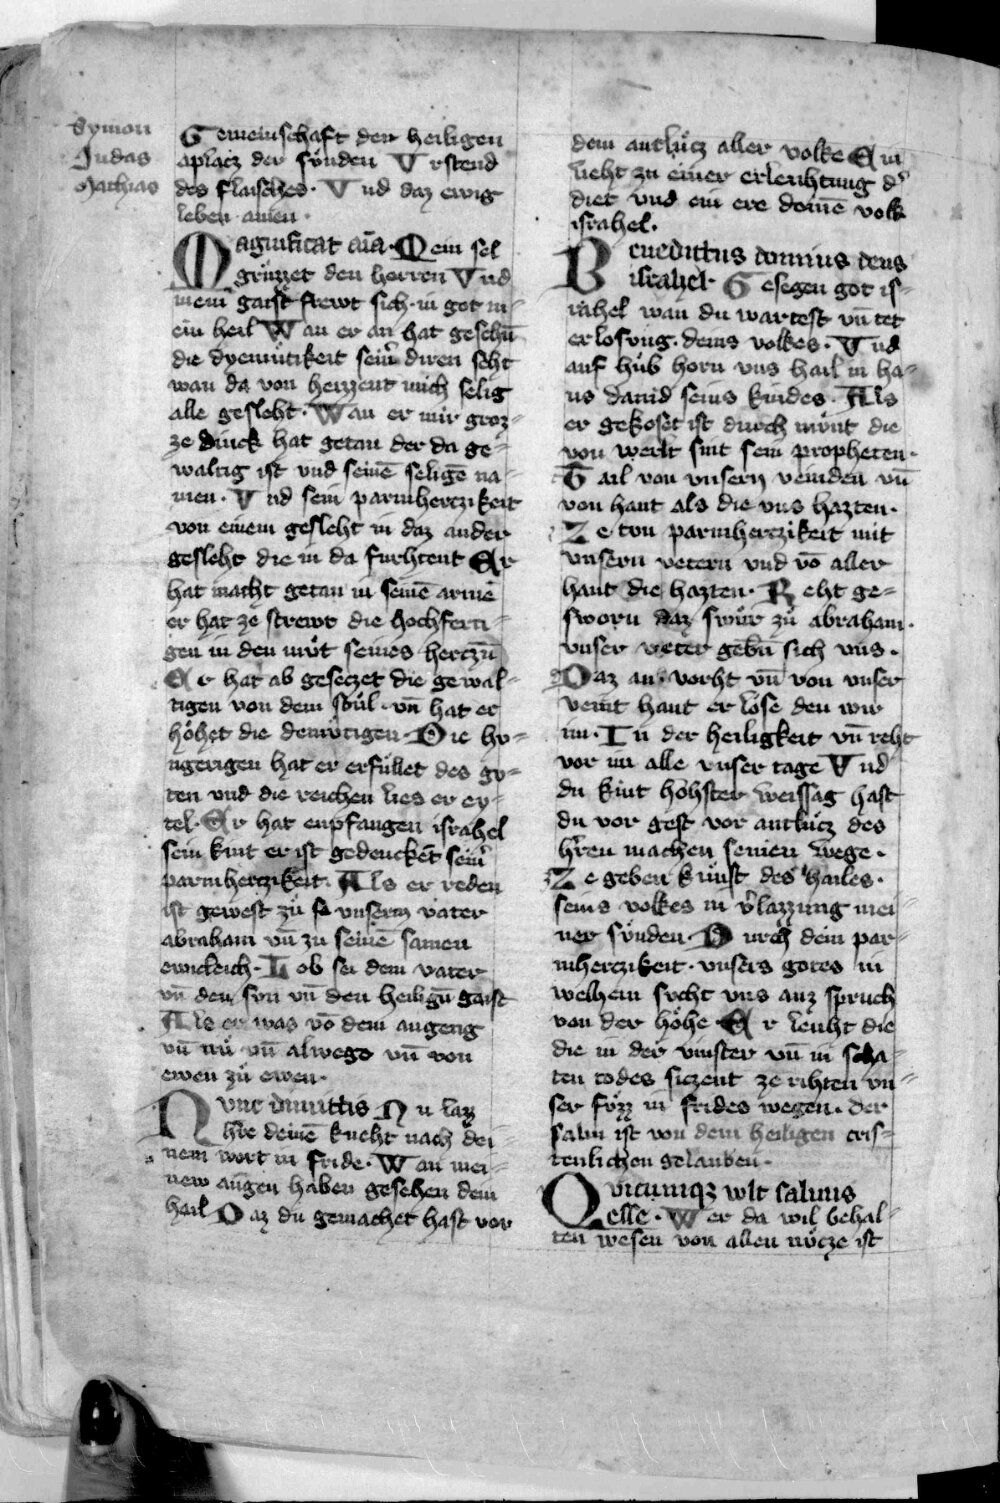 Symon
Judas
Mathias
Gemeinschaft der heiligen
aplacz der sünden Vrstend
des flaisches · Vnd daz ewig
leben · amen ·
Magnificat aīa · Mein sel
grüzzet den herren Vnd
mein gaist frewt sich · in got m-
ein heil Wan er an hat gesehn̄
die dyemütikeit seinˀ diren seht
wan da von heizzent mich selig
alle gesleht · Wan er mir groz-
ze dinck hat getan der da ge-
waltig ist vnd seinē seligē na-
men · Vnd sein parmherczikeit
von einem gesleht in daz ander
gesleht die in da furhtent Er
hat macht getan in seinē armē
er hat ze strewt die hochferti-
gen in den müt seines herczn̄
Er hat ab geseczet die gewal-
tigen von dem stůl · vn̄ hat er
höhet die demütigen · Die hv-
ngerigen hat er erfüllet des gv-
ten vnd die reichen lies er ey-
tel · Er hat enpfangen israhel
sein kint er ist gedenckēt seinˀ
parmherczikeit · Als er reden
ist gewest zů vnserm vater
abraham vn̄ zu seinē samen
ewicleich · Lob sei dem vater
vn̄ den svn vn̄ den heilign̄ gaist
Als er was vō dem angeng
vn̄ nů vn̄ alwege vn̄ von
ewen zů ewen ·
Nunc dimittis Nu lazz
hˀre deinē kneht nach dei-
nem wort in fride · Wan mei-
new augen haben gesehen dein
hail Daz du gemachet hast vor
dem antlücz aller volke Ein
lieht zu einer erleuhtung dˀ
diet vnd ein ere deinē volk
israhel ·
Benedittus dominus deus
israhel Gesegen got is-
rahel wan du wartest vn̄ tet
erlosvng · deins volkes · Vnd
auf hůb horn vns hail in ha-
us dauid seins kindes · Als
er gekoset ist durch münt die
von werlt sint sein propheten ·
Hail von vnsern veinden vn̄
von hant als die vns hazten ·
Ze tvn parmherczikeit mit
vnsern vetern vnd vō aller
hant die hazten · Reht ge-
sworn daz swůr zů abraham ·
vnser veter gebn̄ sich vns ·
Daz an vorht vn̄ von vnser
veint hant erlöse den wir
im · In der heiligkeit vn̄ reht
vor im alle vnser tage Vnd
du kint höhster weissag hast
du vor gest vor antlücz des
hˀren machen seinen wege ·
Ze geben künst des hailes ·
seins volkes in vˀlazzung mei-
ner sünden · Durch dein par-
mherczikeit · vnsers gotes in
welhem svcht vns auz spruch
von der höhe · Er leuht die
die in der vinster vn̄ in scha-
ten todes siczent ze rihten vn-
ser füzz in frides wegen · der
salm ist von dem heiligen cris-
tenlichen gelauben ·
Quicumqz wlt saluus
esse · Wer da wil behal-
ten wesen von allen nücze ist